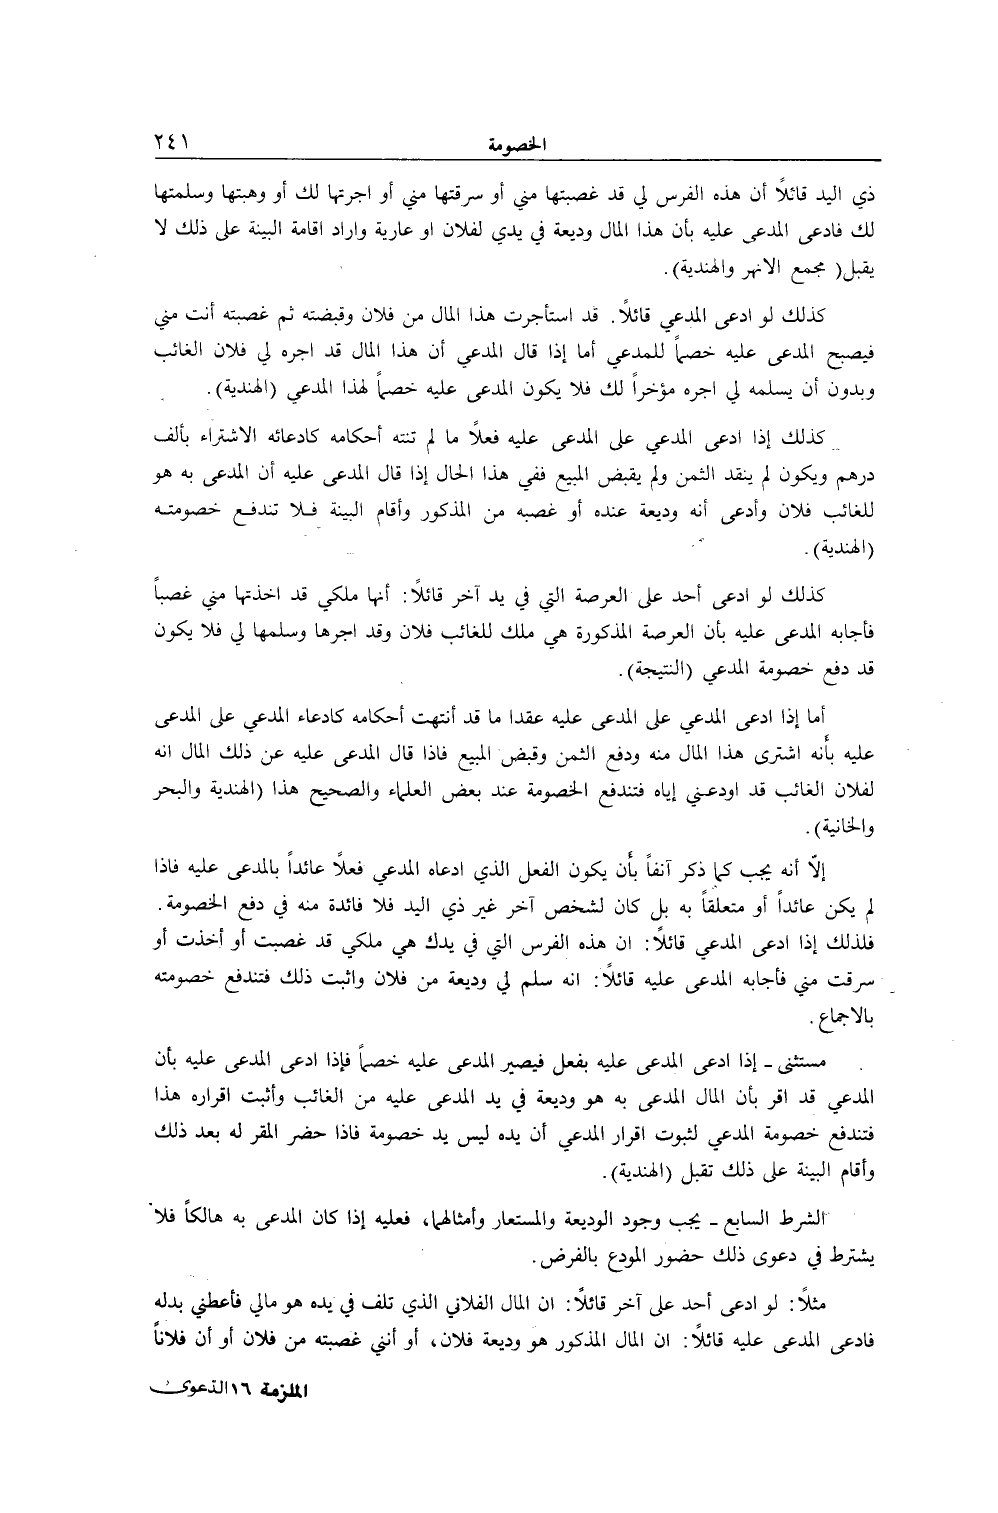 الخصومة ٢٤١
ذي اليد قائلاً أن هذه الفرس لي قد غصبتها مني أو سرقتها مني أو اجرتها لك أو وهبتها وسلمتها
لك فادعى المدعى عليه بأن هذا المال وديعة في يدي لفلان او عارية واراد اقامة البينة على ذلك لا
يقبل( مجمع الانهر والهندية).
كذلك لو ادعى المدعي قائلاً. قد استأجرت هذا المال من فلان وقبضته ثم غصبته أنت مني
فيصبح المدعى عليه خصماً للمدعي أما إذا قال المدعي أن هذا المال قد اجره لي فلان الغائب
وبدون أن يسلمه لي اجره مؤخراً لك فلا يكون المدعى عليه خصماً لهذا المدعي (الهندية).
كذلك إذا ادعى المدعي على المدعى عليه فعلاً ما لم تنته أحكامه كادعائه الاشتراء بألف
درهم ويكون لم ينقد الثمن ولم يقبض المبيع ففي هذا الحال إذا قال المدعى عليه أن المدعى به هو
للغائب فلان وأدعى أنه وديعة عنده أو غصبه من المذكور وأقام البينة فلا تندفع خصومته
(الهندية).
كذلك لو ادعى أحد على العرصة التي في يد آخر قائلاً: أنها ملكي قد اخذتها مني غصباً
فأجابه المدعى عليه بأن العرصة المذكورة هي ملك للغائب فلان وقد اجرها وسلمها لي فلا يكون
قد دفع خصومة المدعي (النتيجة).
أما إذا ادعى المدعي على المدعى عليه عقدا ما قد أنتهت أحكامه كادعاء المدعي على المدعى
عليه بأنه اشترى هذا المال منه ودفع الثمن وقبض المبيع فاذا قال المدعى عليه عن ذلك المال انه
لفلان الغائب قد اودعني إياه فتندفع الخصومة عند بعض العلماء والصحيح هذا (الهندية والبحر
والخانية).
إلاّ أنه يجب كما ذكر آنفاً بأن يكون الفعل الذي ادعاه المدعي فعلاً عائداً بالمدعى عليه فاذا
لم يكن عائداً أو متعلقاً به بل كان لشخص آخر غير ذي اليد فلا فائدة منه في دفع الخصومة.
فلذلك إذا ادعى المدعي قائلاً: ان هذه الفرس التي في يدك هي ملكي قد غصبت أو أخذت أو
سرقت مني فأجابه المدعى عليه قائلاً: انه سلم لي وديعة من فلان واثبت ذلك فتندفع خصومته
بالاجماع.
مستثنى ـ إذا ادعى المدعى عليه بفعل فيصير المدعى عليه خصماً فإذا ادعى المدعى عليه بأن
المدعي قد اقر بأن المال المدعى به هو وديعة في يد المدعى عليه من الغائب وأثبت اقراره هذا
فتندفع خصومة المدعي لثبوت اقرار المدعي أن يده ليس يد خصومة فاذا حضر المقر له بعد ذلك
وأقام البينة على ذلك تقبل (الهندية).
الشرط السابع ـ يجب وجود الوديعة والمستعار وأمثالهما، فعليه إذا كان المدعى به هالكاً فلا
يشترط في دعوى ذلك حضور المودع بالفرض.
مثلاً: لو ادعى أحد على آخر قائلاً: ان المال الفلاني الذي تلف في يده هو مالي فأعطني بدله
فادعى المدعى عليه قائلاً: ان المال المذكور هو وديعة فلان، أو أنني غصبته من فلان أو أن فلاناً
الملزمة ١٦ الدعوى